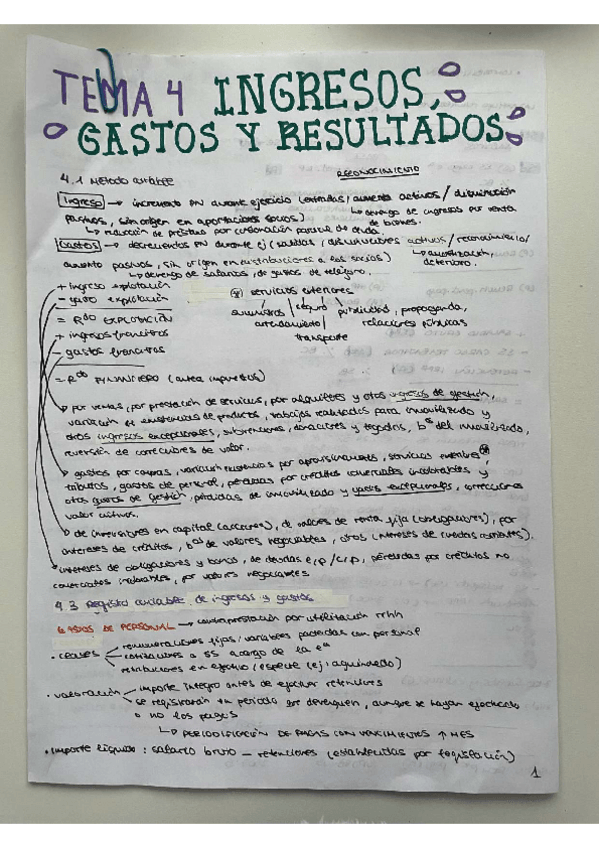 TEMA 4 INGRESOS,
GASTOS Y RESULTADOS
4.1 Método contable
RECONOCIMIENTO
Ingreso → incremento PN durante ejercicio (entradas / aumento activos / disminución
pasivos, sin origen en aportaciones socios)
↳ devengo de ingresos por venta de bienes.
↳ reducción de préstamo por condonación parcial de deuda.
Gastos → decrementos PN durante ej (salidas / disminuciones activos / reconocimiento /
aumento pasivos, sin origen en distribuciones a los socios)
↳ amortización, deterioro.
↳ devengo de salarios, de gastos de teléfono.
+ ingreso explotación
- gasto explotación
= Rdo EXPLOTACIÓN
+ ingresos financieros
- gastos financieros
= Rdo FINANCIERO (antes impuestos)
(*) servicios exteriores
suministros / seguro / publicidad, propaganda,
arrendamiento / relaciones públicas
transporte
↳ por ventas, por prestación de servicios, por alquileres y otros ingresos de gestión,
variación de existencias de productos, trabajos realizados para inmovilizado y
otros ingresos excepcionales, subvenciones, donaciones y legados, bº del inmovilizado,
reversión de correcciones de valor.
↳ gastos por compras, variación existencias por aprovisionamientos, servicios exteriores (*)
tributos, gastos de personal, pérdidas por créditos comerciales incobrables y
otros gastos de gestión, pérdidas de inmovilizado y gastos excepcionales, correcciones
valor activos.
↳ de inversiones en capital (acciones), de valores de renta fija (obligaciones), por
intereses de créditos, bº de valores negociables, otros (intereses de cuentas corrientes).
intereses de obligaciones y bonos, de deudas l/p / c/p, pérdidas por créditos no
comerciales incobrables, por valores negociables
4.3 Registro contable de ingresos y gastos
GASTOS DE PERSONAL → contraprestación por utilización rrhh
• clases remuneraciones fijas / variables pactadas con personal
cotizaciones a SS a cargo de la eª
retribuciones en efectivo / especie (ej: aguinaldo)
• valoración importe íntegro antes de efectuar retenciones
se registrarán en periodo que devenguen, aunque se hayan efectuado
o no los pagos
↳ PERIODIFICACIÓN DE PAGAS CON VENCIMIENTOS ↑ MES
• importe líquido: salario bruto - retenciones (establecidas por legislación)
1